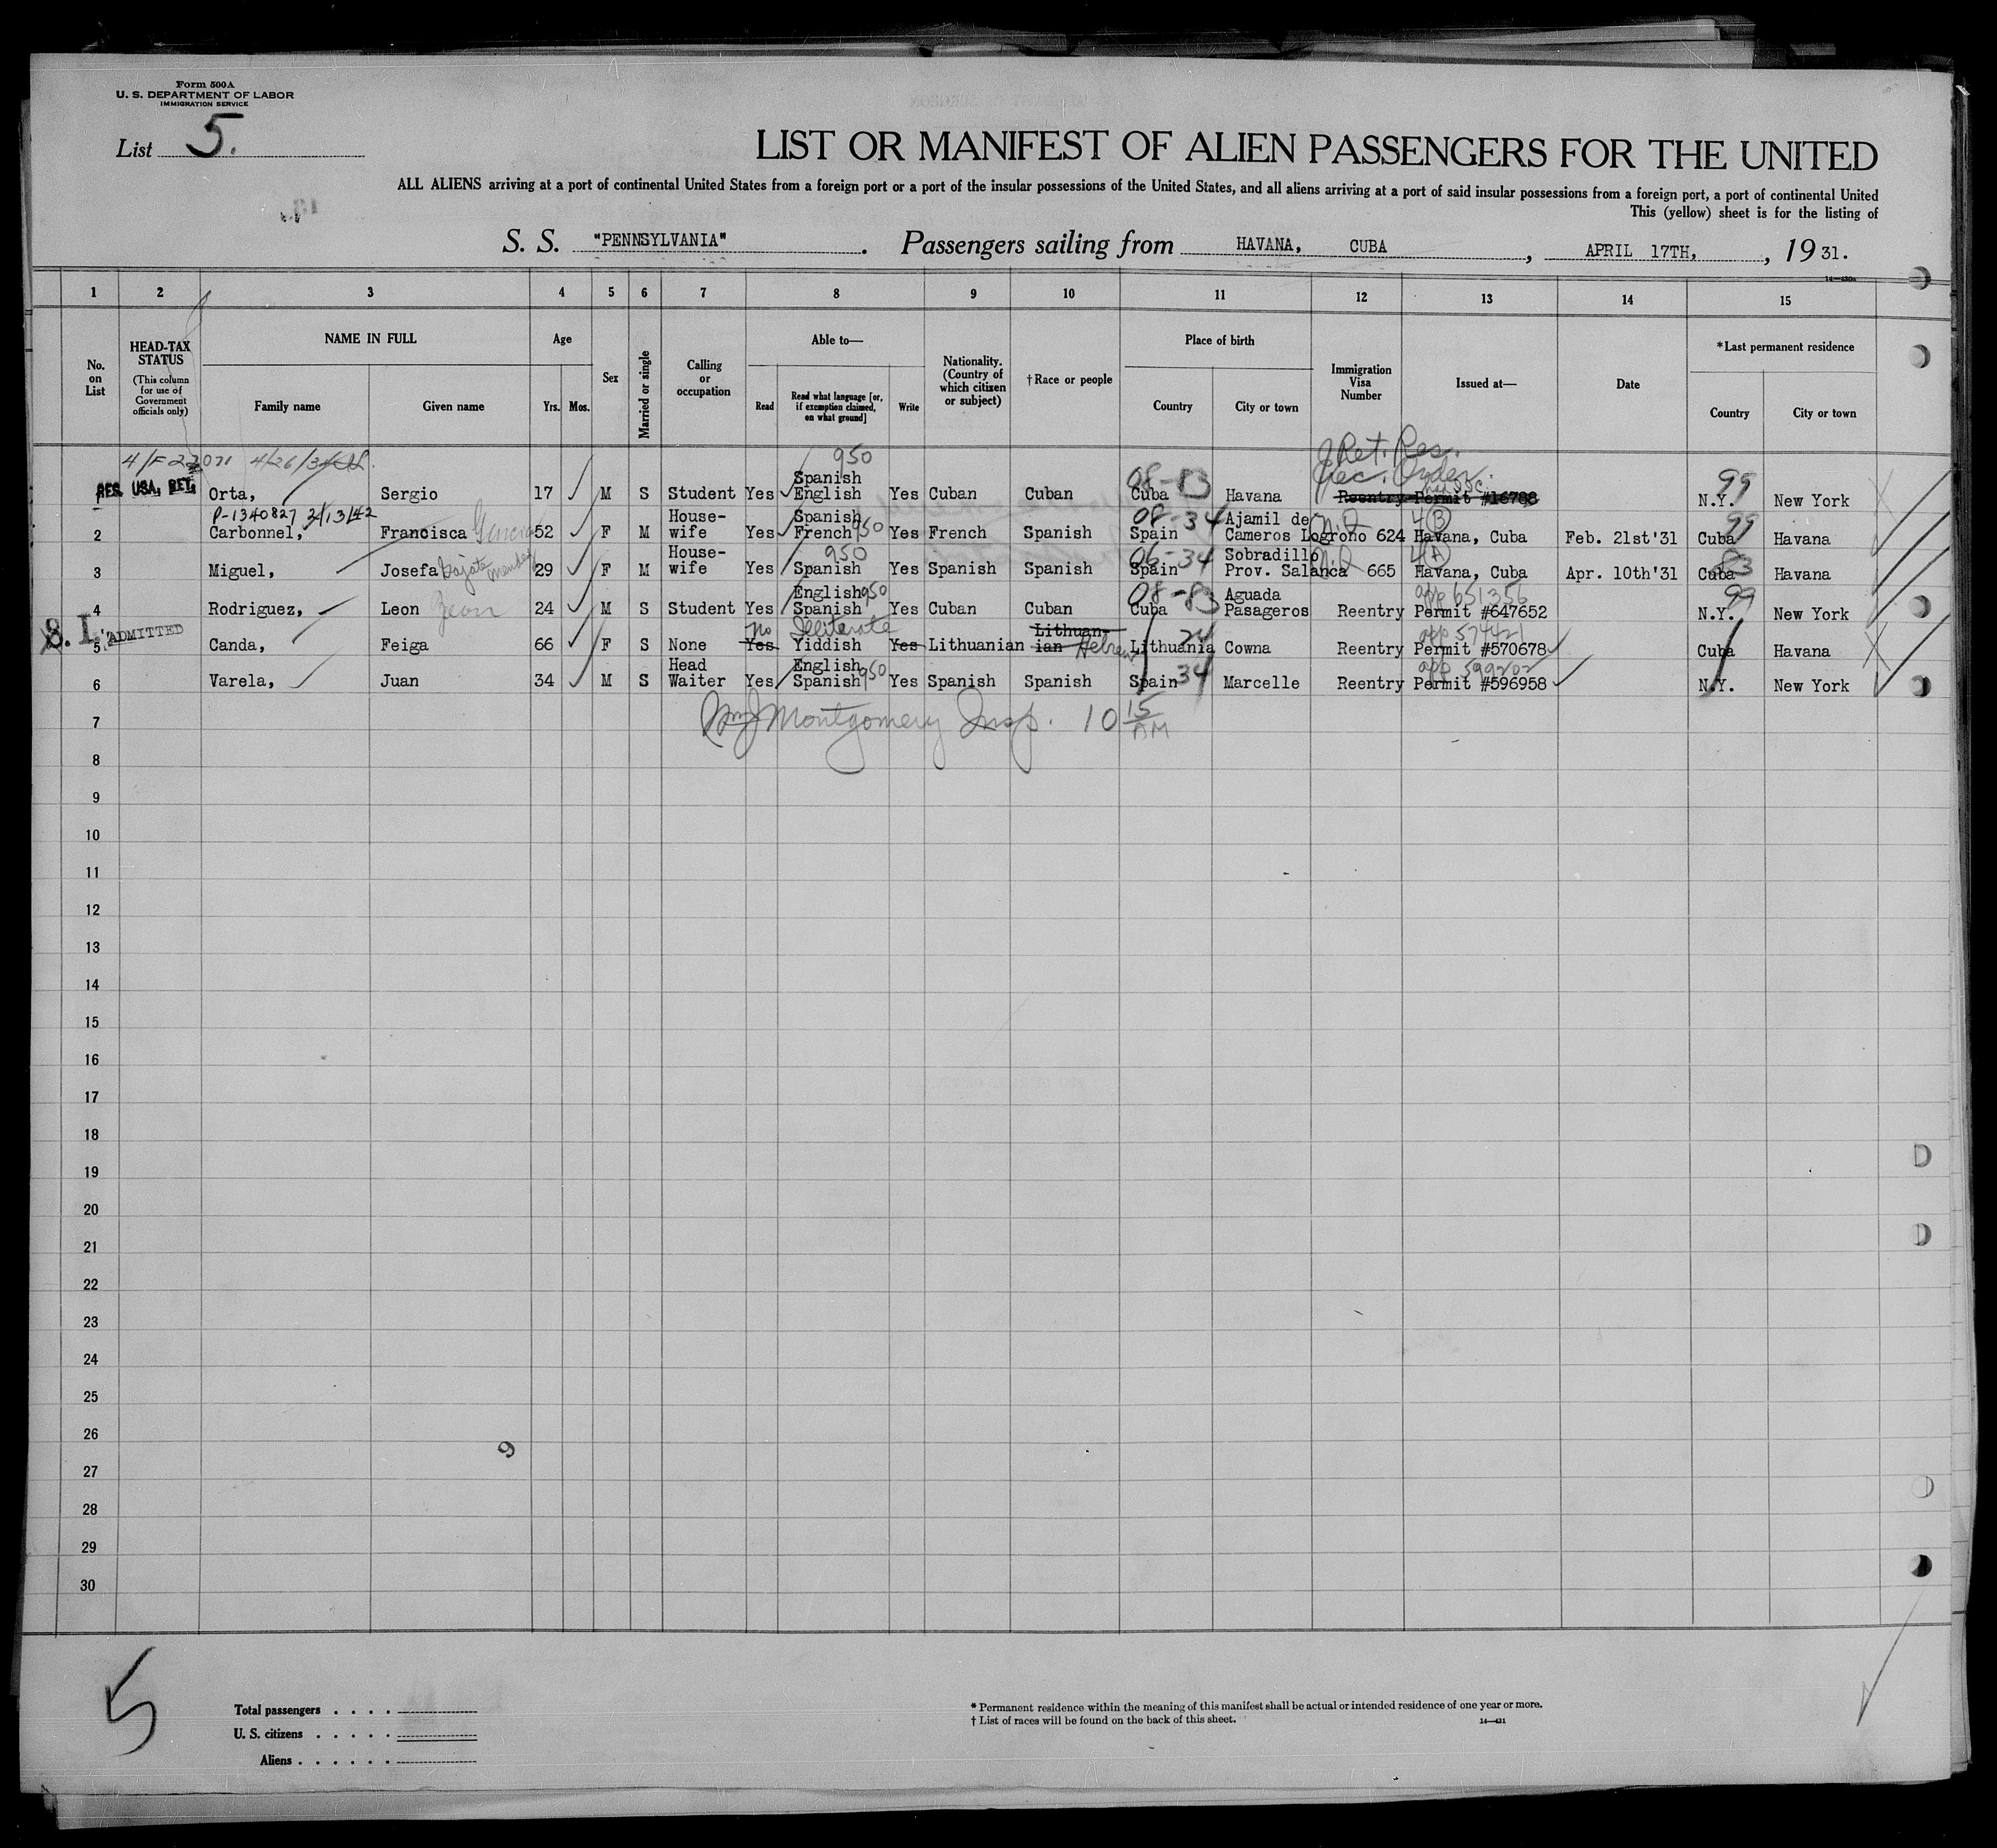 Form 500A
U. S. DEPARTMENT OF LABOR
IMMIGRATION SERVICE
List 5.
LIST OR MANIFEST OF ALIEN PASSENGERS FOR THE UNITED
ALL ALIENS arriving at a port of continental United States from a foreign port or a port of the insular possessions of the United States, and all aliens arriving at a port of said insular possessions from a foreign port, a port of continental United
This (yellow) sheet is for the listing of
S. S. "PENNSYLVANIA". Passengers sailing from HAVANA, CUBA, APRIL 17TH, , 19 31.
14—430a
1 2 3 4 5 6 7 8 9 10 11 12 13 14 15
No. on List
HEAD-TAX STATUS (This column for use of Government officials only)
NAME IN FULL Family name Given name
Age Yrs. Mos.
Sex
Married or single
Calling or occupation
Able to— Read Read what language [or, if exemption claimed, on what ground] Write
Nationality. (Country of which citizen or subject)
†Race or people
Place of birth Country City or town
Immigration Visa Number
Issued at—
Date
*Last permanent residence Country City or town
4/26/34 950 Ret. Res.
Spanish 08-83 Exec. Order 99
RES. USA, RET. Orta, Sergio 17 M S Student Yes English Yes Cuban Cuban Cuba Havana Reentry Permit #16788 N.Y. New York
P-1340827 3/13/42 House- Spanish 08-34 Ajamil de 4 B 99
2 Carbonnel, Francisca Garcia 52 F M wife Yes French 950 Yes French Spanish Spain Cameros Logrono 624 Havana, Cuba Feb. 21st'31 Cuba Havana
House- 950 06-34 Sobradillo 4 A 83
3 Miguel, Josefa 29 F M wife Yes Spanish Yes Spanish Spanish Spain Prov. Salanca 665 Havana, Cuba Apr. 10th'31 Cuba Havana
English 950 08-83 Aguada app 651356 99
4 Rodriguez, Leon Leon 24 M S Student Yes Spanish Yes Cuban Cuban Cuba Pasageros Reentry Permit #647652 N.Y. New York
S. I. ADMITTED no Illiterate Lithuan- 24 app 57421
5 Canda, Feiga 66 F S None Yes Yiddish Yes Lithuanian ian Hebrew Lithuania Cowna Reentry Permit #570678 Cuba Havana
Head English 34 app 599202
6 Varela, Juan 34 M S Waiter Yes Spanish 950 Yes Spanish Spanish Spain Marcelle Reentry Permit #596958 N.Y. New York
Wm J Montgomery Insp. 10 15 AM
7
8
9
10
11
12
13
14
15
16
17
18
19
20
21
22
23
24
25
26
9
27
28
29
30
5
Total passengers . . . .
U. S. citizens . . . . .
Aliens . . . . . .
* Permanent residence within the meaning of this manifest shall be actual or intended residence of one year or more.
† List of races will be found on the back of this sheet.
14—431